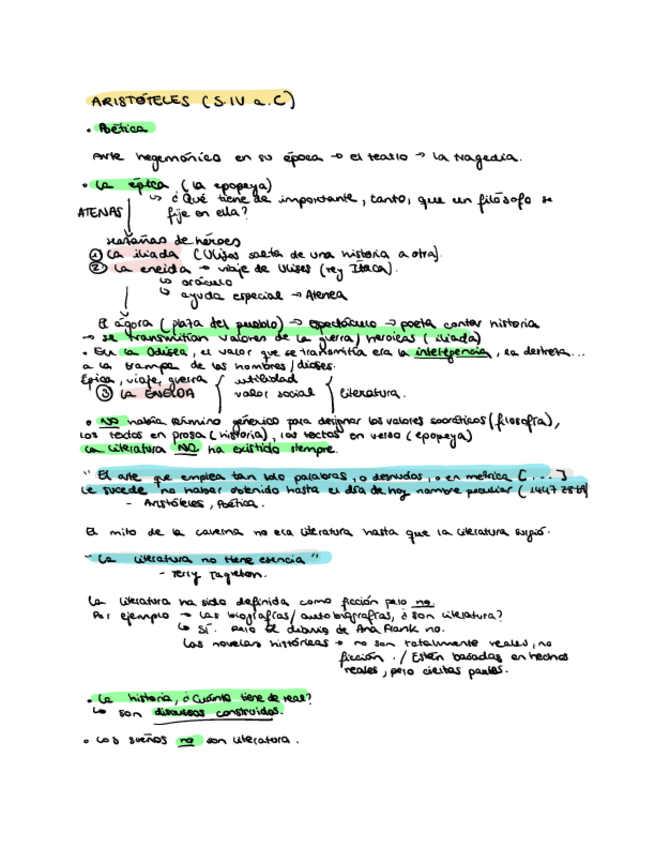 ARISTÓTELES (S.IV a.C)
• Poética
Arte hegemónico en su época → el teatro → la tragedia.
• La épica (la epopeya)
↳ ¿Qué tiene de importante, tanto, que un filósofo se
ATENAS fije en ella?
hazañas de héroes
① La iliada (Ulises salta de una historia a otra).
② La eneida → viaje de Ulises (rey Itaca).
↳ oráculo
↳ ayuda especial → Atenea
El ágora (plaza del pueblo) → espectáculo → poeta cantar historia
→ se transmitían valores de la guerra/heroicas (iliada)
• En la Odisea, el valor que se transmitía era la inteligencia, la destreza...
a la trampa de los hombres/dioses.
Épica, viaje, guerra utilidad
③ La ENEIDA valor social literatura.
• NO había término genérico para designar los valores socráticos (filosofía),
los textos en prosa (historia), los textos en verso (epopeya)
La literatura NO ha existido siempre.
"El arte que emplea tan solo palabras, o desnudas, o en métrica [...]
le sucede no haber obtenido hasta el día de hoy nombre peculiar (1447 28b9)
- Aristóteles, Poética.
El mito de la caverna no era literatura hasta que la literatura surgió.
"La literatura no tiene esencia"
- Terry Tagleton.
La literatura ha sido definida como ficción pero no.
Por ejemplo → Las biografías/autobiografías, ¿son literatura?
↳ Sí. pero el diario de Ana Frank no.
Las novelas históricas → no son totalmente reales, no
ficción. / Están basadas en hechos
reales, pero ciertas partes.
• La historia, ¿Cuánto tiene de real?
↳ son discursos construidos.
• Los sueños no son literatura.